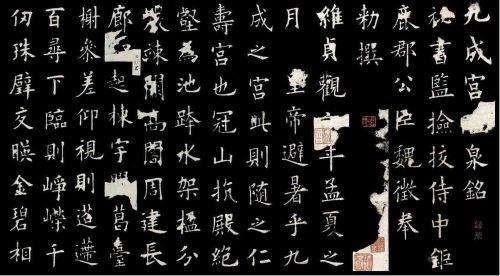 九成宫泉銘
秘書監撿挍侍中鉅
鹿郡公臣魏徵奉
勑撰
維貞觀年孟夏之
月皇帝避暑乎九
成之宫此則隨之仁
壽宫也冠山抗殿絶
壑為池跨水架楹分
巖竦闕高閣周建長
廊起棟宇葛臺
榭叅差仰視則迢遰
百尋下臨則崢嶸千
仞珠璧交暎金碧相